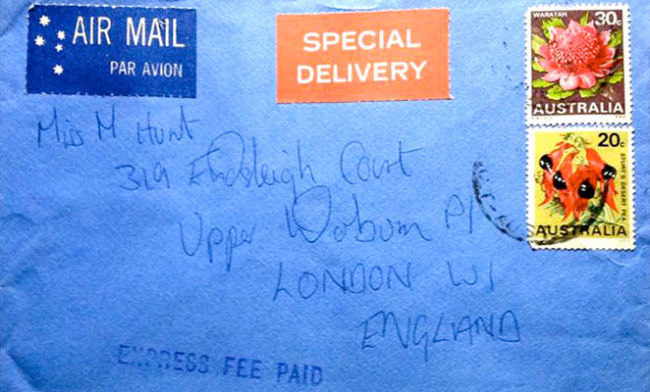 AIR MAIL
PAR AVION
SPECIAL
DELIVERY
WARATAH 30c
AUSTRALIA
20c STURT'S DESERT PEA
AUSTRALIA
Miss M Hunt
319 Endsleigh Court
Upper Woburn Pl
LONDON W1
ENGLAND
EXPRESS FEE PAID